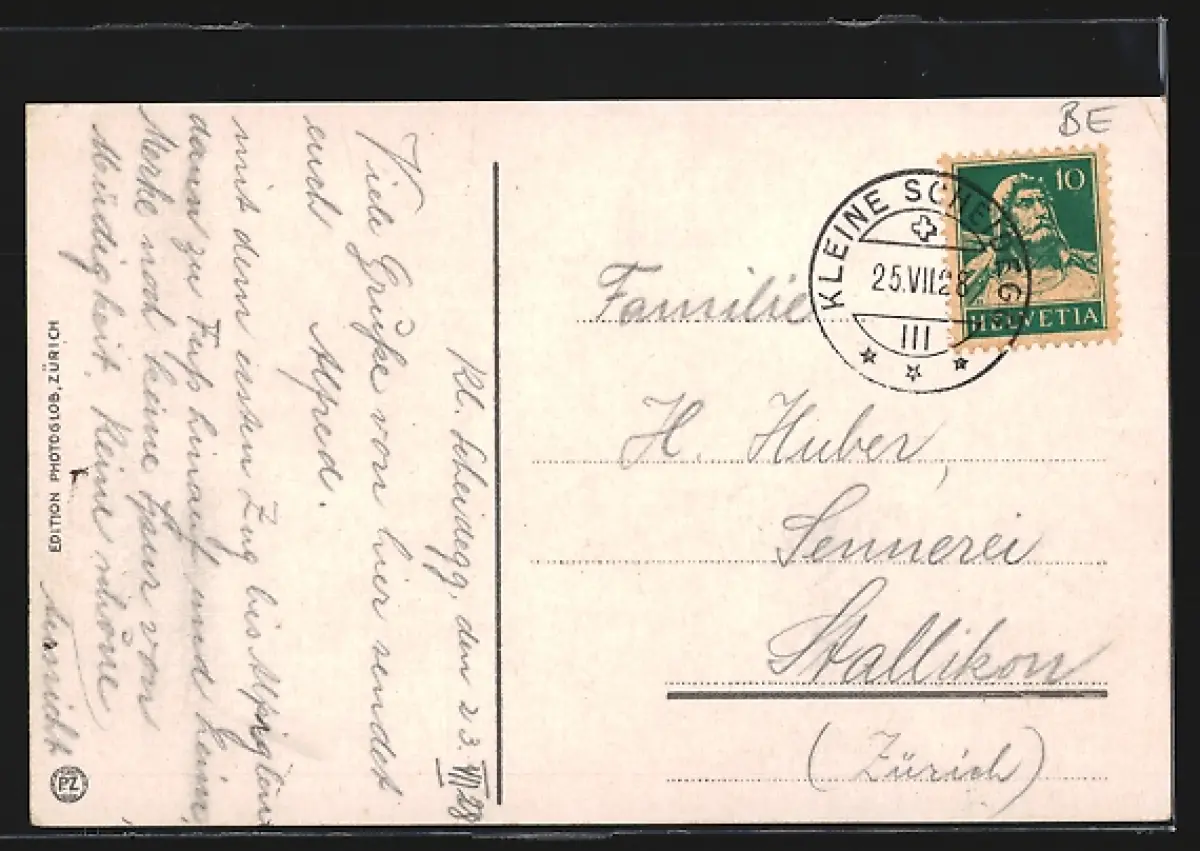 Kl. Scheidegg, den 23. VII 28
Viele Grüße von hier sendet
euch Alfred.
mit dem ersten Zug bis Alpiglen
dann zu Fuß hinauf und heim.
Merke noch keine Spur von
Müdigkeit. Keine schöne
Aussicht
EDITION PHOTOGLOB, ZÜRICH
PZ
BE
10
HELVETIA
KLEINE SCHEIDEGG
25.VII.28
III
Familie
H. Huber,
Sennerei
Stallikon
(Zürich)